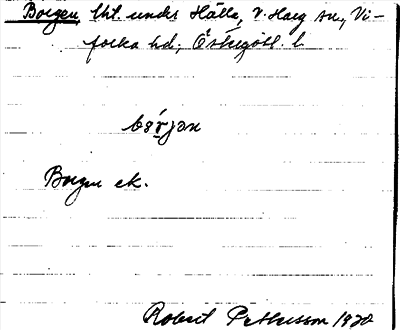 Borgen, lht. under Hälla, V. Harg sn., Vi-
folka hd., Östergötl. l.
bórjan
Borgen ek.
Robert Pettersson 1930